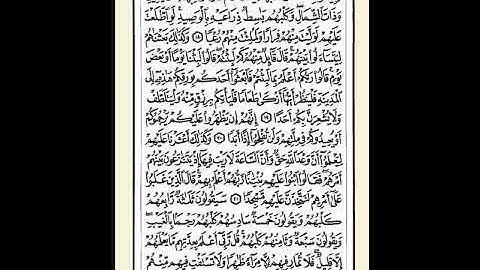 وَذَاتَ ٱلشِّمَالِ وَكَلْبُهُم بَٰسِطٌ ذِرَاعَيْهِ بِٱلْوَصِيدِ لَوِ ٱطَّلَعْتَ
عَلَيْهِمْ لَوَلَّيْتَ مِنْهُمْ فِرَارًا وَلَمُلِئْتَ مِنْهُمْ رُعْبًا ١٨ وَكَذَٰلِكَ بَعَثْنَٰهُمْ
لِيَتَسَآءَلُوا۟ بَيْنَهُمْ قَالَ قَآئِلٌ مِّنْهُمْ كَمْ لَبِثْتُمْ قَالُوا۟ لَبِثْنَا يَوْمًا أَوْ بَعْضَ
يَوْمٍ قَالُوا۟ رَبُّكُمْ أَعْلَمُ بِمَا لَبِثْتُمْ فَٱبْعَثُوٓا۟ أَحَدَكُم بِوَرِقِكُمْ هَٰذِهِۦٓ إِلَى
ٱلْمَدِينَةِ فَلْيَنظُرْ أَيُّهَآ أَزْكَىٰ طَعَامًا فَلْيَأْتِكُم بِرِزْقٍ مِّنْهُ وَلْيَتَلَطَّفْ
وَلَا يُشْعِرَنَّ بِكُمْ أَحَدًا ١٩ إِنَّهُمْ إِن يَظْهَرُوا۟ عَلَيْكُمْ يَرْجُمُوكُمْ
أَوْ يُعِيدُوكُمْ فِى مِلَّتِهِمْ وَلَن تُفْلِحُوٓا۟ إِذًا أَبَدًا ٢٠ وَكَذَٰلِكَ أَعْثَرْنَا عَلَيْهِمْ
لِيَعْلَمُوٓا۟ أَنَّ وَعْدَ ٱللَّهِ حَقٌّ وَأَنَّ ٱلسَّاعَةَ لَا رَيْبَ فِيهَآ إِذْ يَتَنَٰزَعُونَ بَيْنَهُمْ
أَمْرَهُمْ فَقَالُوا۟ ٱبْنُوا۟ عَلَيْهِم بُنْيَٰنًا رَّبُّهُمْ أَعْلَمُ بِهِمْ قَالَ ٱلَّذِينَ غَلَبُوا۟
عَلَىٰٓ أَمْرِهِمْ لَنَتَّخِذَنَّ عَلَيْهِم مَّسْجِدًا ٢١ سَيَقُولُونَ ثَلَٰثَةٌ رَّابِعُهُمْ
كَلْبُهُمْ وَيَقُولُونَ خَمْسَةٌ سَادِسُهُمْ كَلْبُهُمْ رَجْمًۢا بِٱلْغَيْبِ
وَيَقُولُونَ سَبْعَةٌ وَثَامِنُهُمْ كَلْبُهُمْ قُل رَّبِّىٓ أَعْلَمُ بِعِدَّتِهِم مَّا يَعْلَمُهُمْ
إِلَّا قَلِيلٌ فَلَا تُمَارِ فِيهِمْ إِلَّا مِرَآءً ظَٰهِرًا وَلَا تَسْتَفْتِ فِيهِم مِّنْهُمْ